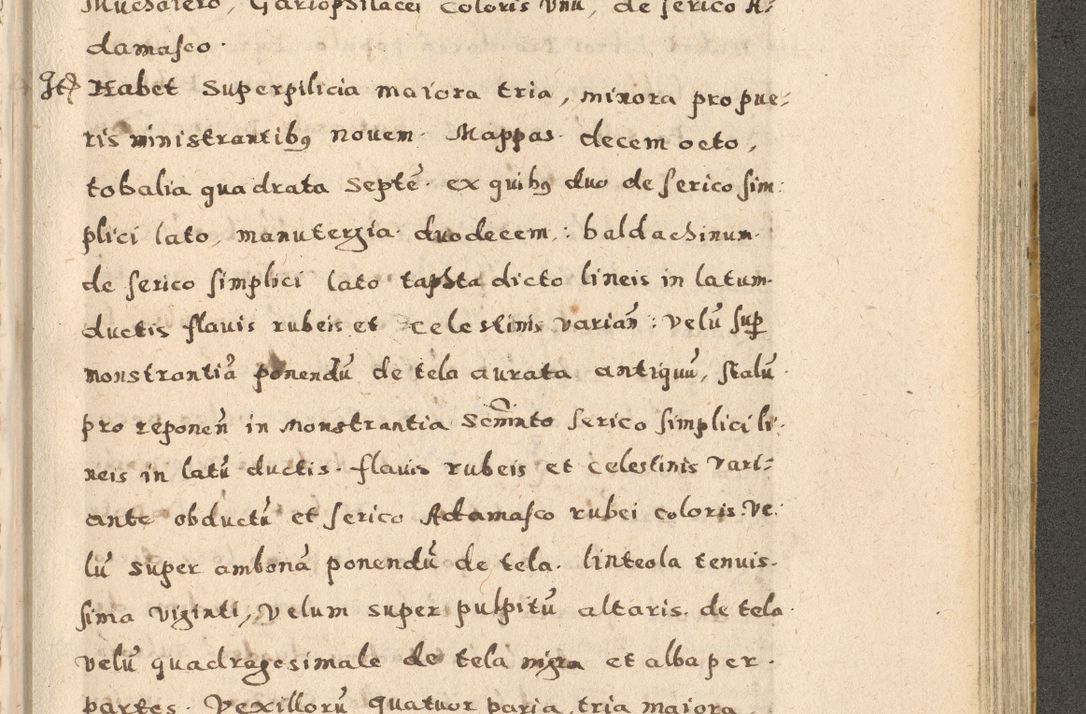 Muchaiero, Gariophilacei Coloris Vnũ, de serico A-
damasco.
Itẽ Habet Superpilicia maiora tria, minora pro pue-
ris ministrantibꝯ nouem. Mappas. decem octo,
tobalia quadrata Septẽ. ex quibꝯ duo de serico sim:
plici lato, manutergia. duodecem,: baldachinum.
de serico simplici lato taphta dicto lineis in latum
ductis flauis rubeis et celestinis varian̄: velũ suꝑ
monstrantiã ponendũ de tela aurata antiquũ, stalũ.
pro reponen̄ in Monstrantia Scm̃nto serico simplici li-
neis in latũ ductis. flauis rubeis et celestinis vari-
ante obductũ et serico Adamasco rubei coloris: Ve:
lũ super ambonã ponendũ de tela. linteola tenuis-
sima viginti, velum super pulpitũ altaris. de tela.
velũ quadragesimale de tela nigra et alba per.
partes. Vexillorũ quatuor paria, tria maiora,